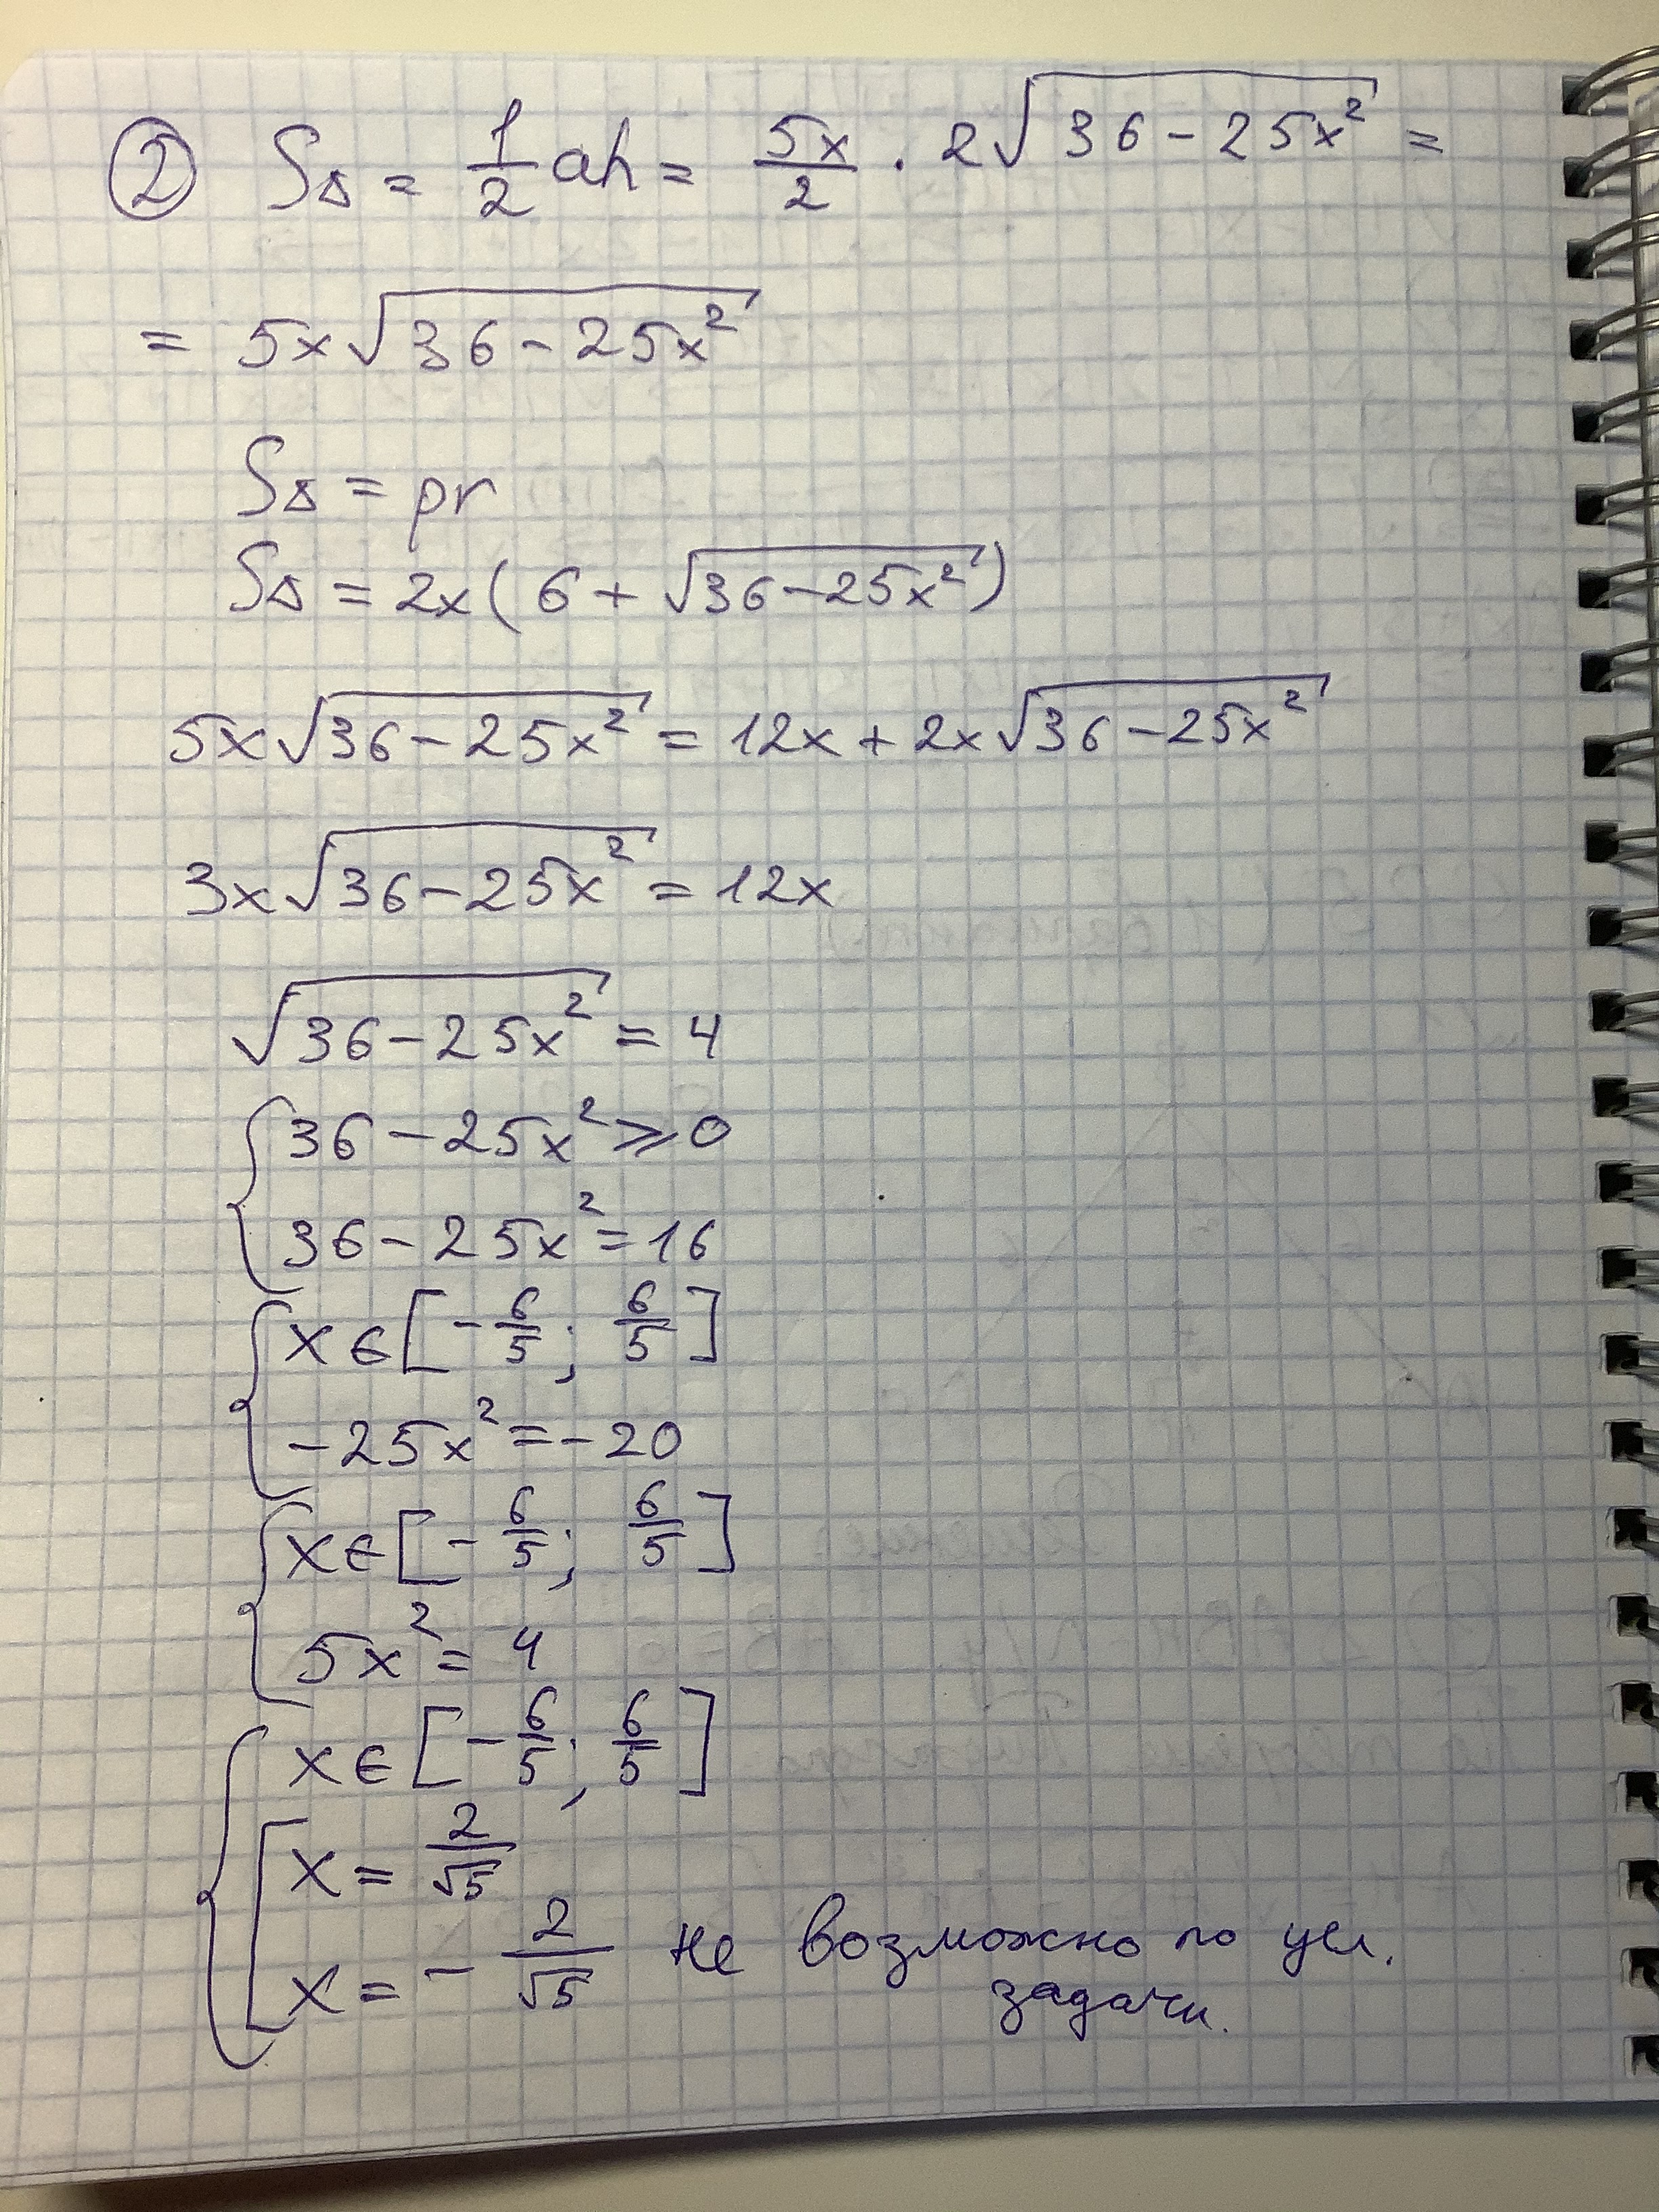 ② S△ = 1/2 ah = 5x/2 · 2√(36 - 25x²) =
= 5x√(36 - 25x²)
S△ = pr
S△ = 2x(6 + √(36 - 25x²))
5x√(36 - 25x²) = 12x + 2x√(36 - 25x²)
3x√(36 - 25x²) = 12x
√(36 - 25x²) = 4
{ 36 - 25x² ⩾ 0
36 - 25x² = 16
{ x ∈ [-6/5; 6/5]
-25x² = -20
{ x ∈ [-6/5; 6/5]
5x² = 4
{ x ∈ [-6/5; 6/5]
[ x = 2/√5
x = - 2/√5 не возможно по усл.
задачи.